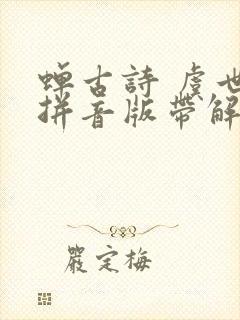 蟬古詩 虞世
拼音版帶解
嚴定梅